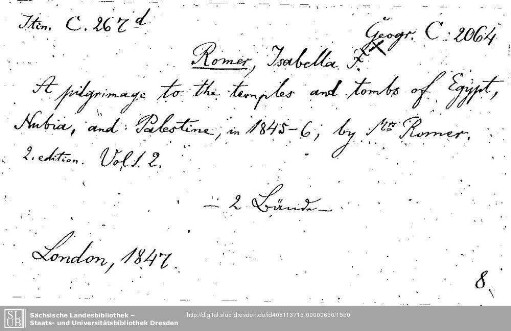 Itin. C. 267d
Geogr. C. 2064
Romer, Isabella F.
A pilgrimage to the temples and tombs of Egypt,
Nubia, and Palestine, in 1845-6; by Mrs Romer.
2. edition. Vol. 1. 2.
— 2 Bände —
London, 1847.
8.
SLUB
Sächsische Landesbibliothek –
Staats- und Universitätsbibliothek Dresden